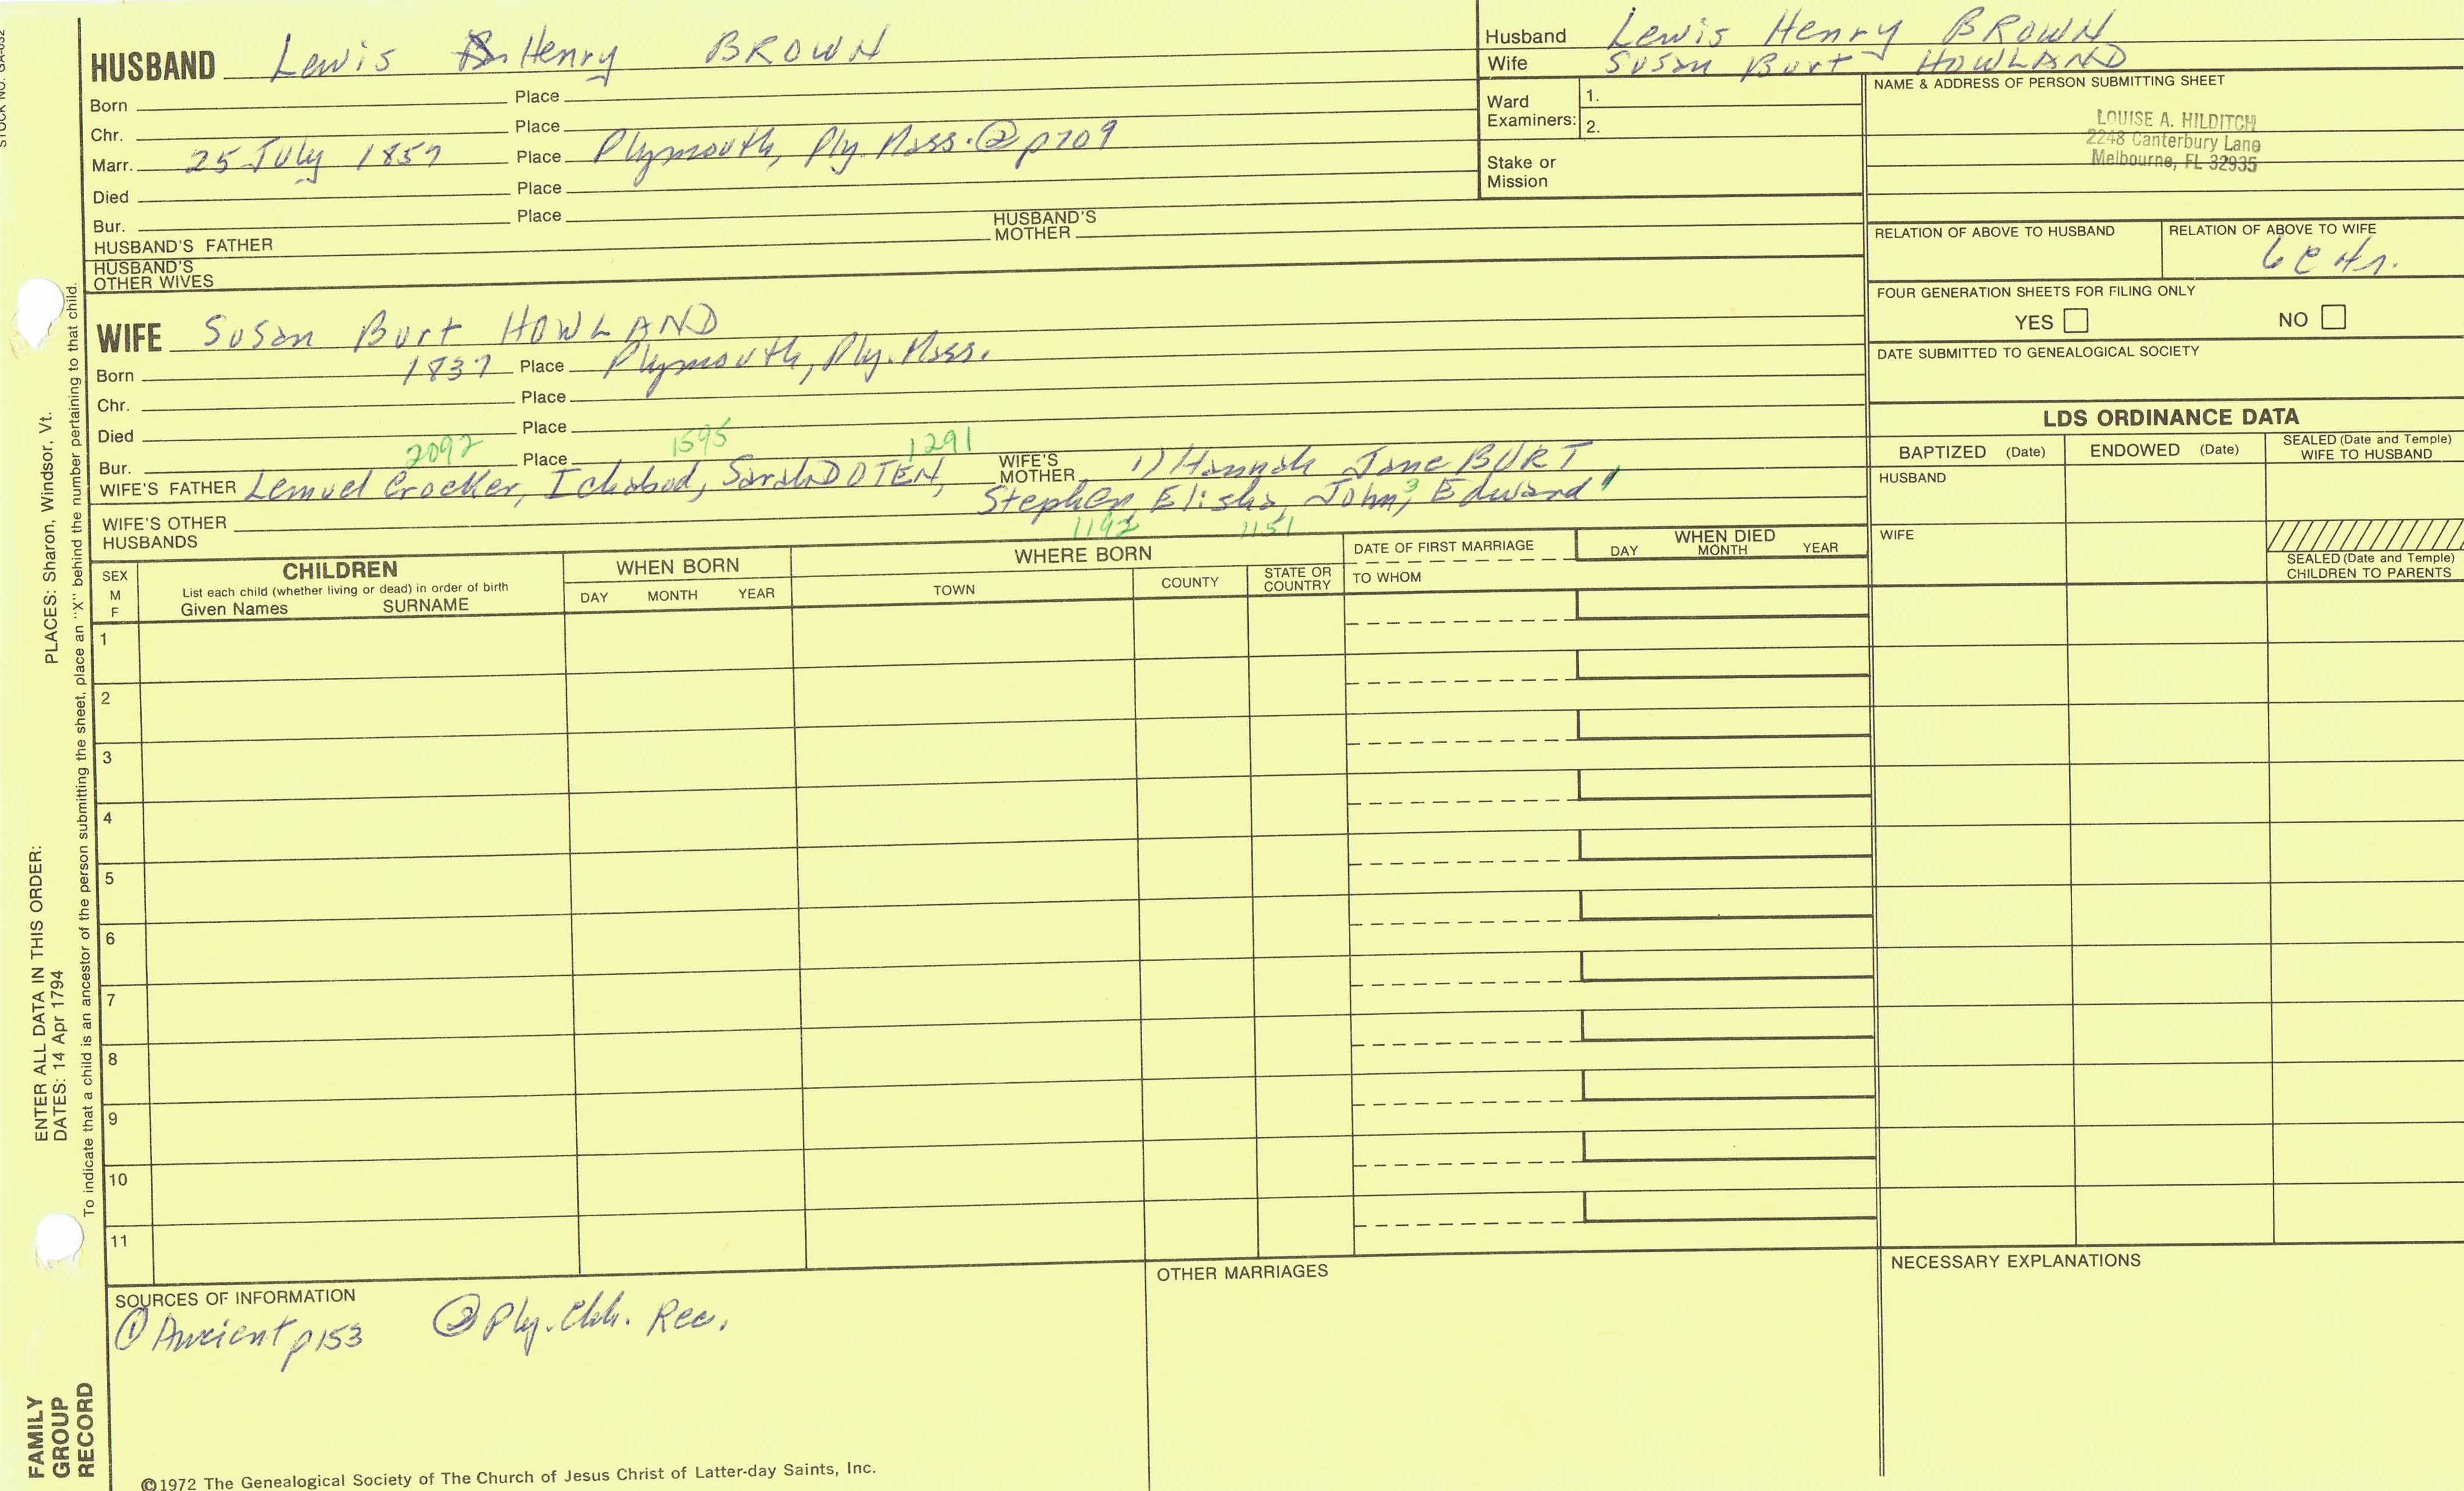 HUSBAND Lewis Henry BROWN
Born Place
Chr. Place
Marr. 25 July 1857 Place Plymouth, Ply. Mass. ② p709
Died Place
Bur. Place
HUSBAND'S FATHER HUSBAND'S MOTHER
HUSBAND'S OTHER WIVES
Husband Lewis Henry BROWN
Wife Susan Burt HOWLAND
Ward Examiners: 1.
2.
Stake or Mission
NAME & ADDRESS OF PERSON SUBMITTING SHEET
LOUISE A. HILDITCH
2248 Canterbury Lane
Melbourne, FL 32935
RELATION OF ABOVE TO HUSBAND RELATION OF ABOVE TO WIFE
FOUR GENERATION SHEETS FOR FILING ONLY
YES NO
DATE SUBMITTED TO GENEALOGICAL SOCIETY
WIFE Susan Burt HOWLAND
Born 1837 Place Plymouth, Ply. Mass.
Chr. Place
Died Place
2092 1595 1291
Bur. Place
WIFE'S FATHER Lemuel Crocker, Ichabod, Sarah DOTEN, WIFE'S MOTHER 1) Hannah Jane BURT
Stephen, Elisha, John, 3 Edward 1
1192 1151
WIFE'S OTHER HUSBANDS
LDS ORDINANCE DATA
BAPTIZED (Date) ENDOWED (Date) SEALED (Date and Temple) WIFE TO HUSBAND
HUSBAND
WIFE
SEALED (Date and Temple) CHILDREN TO PARENTS
SEX M F
CHILDREN
List each child (whether living or dead) in order of birth
Given Names SURNAME
WHEN BORN
DAY MONTH YEAR
WHERE BORN
TOWN COUNTY STATE OR COUNTRY
DATE OF FIRST MARRIAGE
TO WHOM
WHEN DIED
DAY MONTH YEAR
1
2
3
4
5
6
7
8
9
10
11
SOURCES OF INFORMATION
① Ancient p153 ② Ply. Chh. Rec.
OTHER MARRIAGES
NECESSARY EXPLANATIONS
©1972 The Genealogical Society of The Church of Jesus Christ of Latter-day Saints, Inc.
STOCK NO. GA-032
PLACES: Sharon, Windsor, Vt.
ENTER ALL DATA IN THIS ORDER:
DATES: 14 Apr 1794
To indicate that a child is an ancestor of the person submitting the sheet, place an "X" behind the number pertaining to that child.
FAMILY
GROUP
RECORD